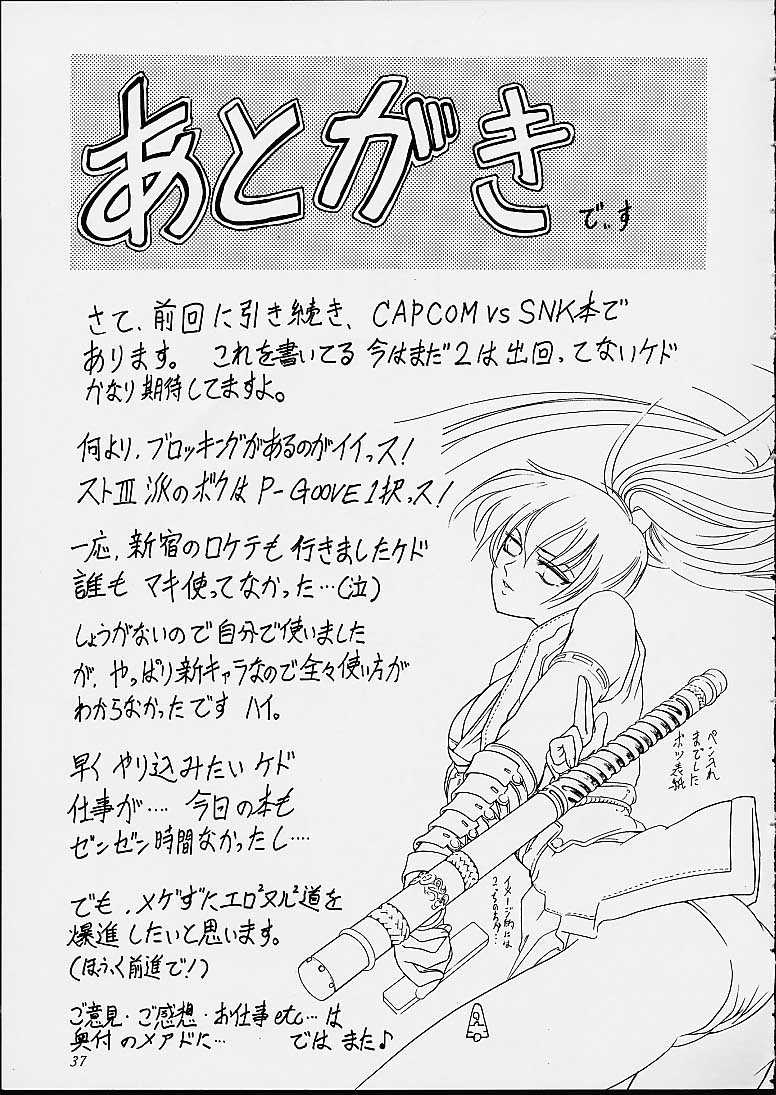 あとがき
でぃす
さて、前回に引き続き、CAPCOM vs SNK本で
あります。 これを書いてる 今はまだ2は出回ってないケド
かなり期待してますよ。
何より、ブロッキングがあるのがイイっス!
ストIII派のボクは P-GOOVE1択っス!
一応、新宿のロケテも行きましたケド
誰も マキ使ってなかった…(泣)
しょうがないので自分で使いました
が、やっぱり新キャラなので全々使い方が
わからなかったです ハイ。
早く やり込みたい ケド
仕事が…. 今日の本も
ゼンゼン時間なかったし….
でも、メゲずにエロ²ヌル²道を
爆進したいと思います。
(ほふく前進で!)
ご意見・ご感想・お仕事etc…は
奥付のメアドに… では また♪
ペン入れ
までした
ボツ表紙
イメージ的には
37